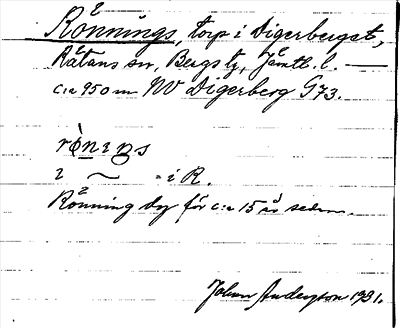 Rönnings, torp i Digerberget,
Rätans sn, Bergs tg, Jämtl. l. —
c:a 950 m NV Digerberg G73.
rö̀nıŋs
i ~ = i R.
Rönning dog för c:a 15 år sedan.
Johan Anderzon 1931.